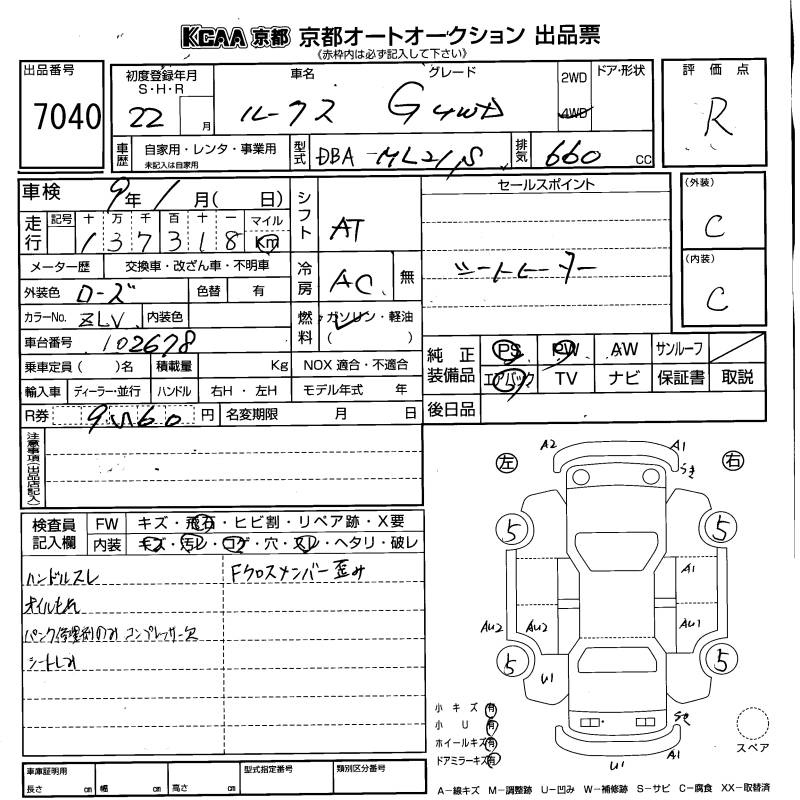 KCAA 京都 京都オートオークション 出品票
《赤枠内は必ず記入して下さい》
出品番号
7040
初度登録年月
S・H・R
22 月
車名
ルークス
グレード
G 4WD
2WD
4WD
ドア・形状
評価点
R
車歴
自家用・レンタ・事業用
未記入は自家用
型式
DBA-ML21S
排気
660 CC
車検 9年 1月( 日)
シフト
AT
セールスポイント
シートヒーター
(外装)
C
(内装)
C
走行
記号 十 万 千 百 十 一 マイル
1 3 7 3 1 8 Km
メーター歴 交換車・改ざん車・不明車
冷房
AC 無
外装色 ローズ 色替 有
カラーNo. ZLV 内装色
燃料
ガソリン・軽油
( )
車台番号 102678
乗車定員( )名 積載量 Kg NOX 適合・不適合
輸入車 ディーラー・並行 ハンドル 右H・左H モデル年式 年
R券 円 名変期限 月 日
純正装備品
PS PW AW サンルーフ
エアバック TV ナビ 保証書 取説
後日品
注意事項(出品店記入)
検査員記入欄
FW キズ・飛石・ヒビ割・リペア跡・X要
内装 キズ・汚レ・コゲ・穴・スレ・ヘタリ・破レ
ハンドルスレ
Fクロスメンバー歪み
オイルもれ
パンク修理剤のみ コンプレッサー欠
シートしみ
左
右
A2 A1
5 5
A1
AU2 AU2 AU1
5 5
U1
U1 A1
小キズ 有
小U 有
ホイールキズ 有
ドアミラーキズ 有
スペア
車庫証明用
長さ cm 幅 cm 高さ cm
型式指定番号
類別区分番号
A-線キズ M-調整跡 U-凹み W-補修跡 S-サビ C-腐食 XX-取替済